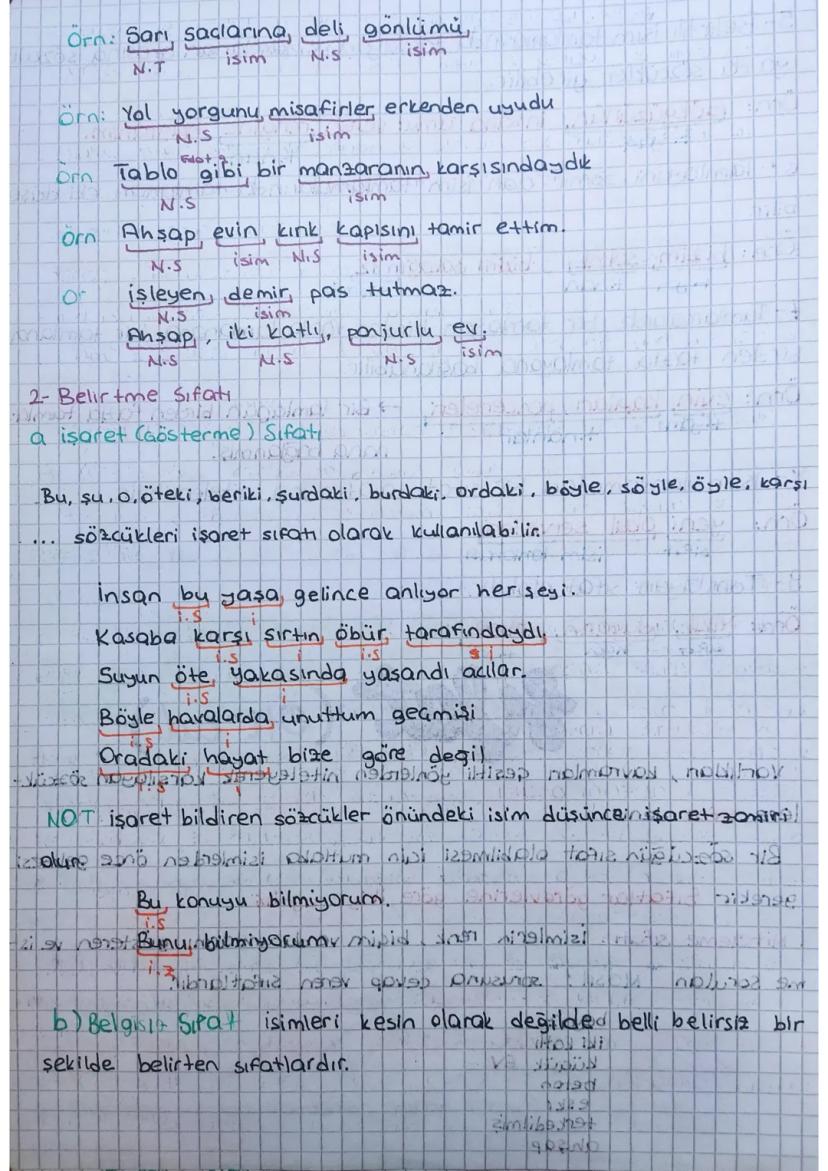 Örn: Sarı saçlarına deli gönlümü,
N.T isim N.S isim
Örn: Yol yorgunu misafirler erkenden uyudu
N.S isim
Edat
Örn Tablo gibi bir manzaranın karşısındaydık
N.S isim
Örn Ahşap evin kırık kapısını tamir ettim.
N.S isim N.S isim
Ör işleyen demir pas tutmaz.
N.S isim
Ahşap, iki katlı, panjurlu ev.
N.S N.S N.S isim
2- Belirtme Sıfatı
a işaret (Gösterme) Sıfatı
Bu, şu, o, öteki, beriki, şurdaki, burdaki, ordaki, böyle, şöyle, öyle, karşı
... sözcükleri işaret sıfatı olarak kullanılabilir.
İnsan bu yaşa gelince anlıyor her şeyi.
i.s i
Kasaba karşı sırtın öbür tarafındaydı
i.s i i.s i
Suyun öte yakasında yaşandı acılar.
i.s i
Böyle havalarda unuttum geçmişi
i.s i
Oradaki hayat bize göre değil
i.s i
NOT işaret bildiren sözcükler önündeki isim düşünce işaret zamiri
olur
Bu konuyu bilmiyorum.
i.s
Bunu bilmiyorum
i.z
b) Belgisiz Sıfat isimleri kesin olarak değilde belli belirsiz bir
şekilde belirten sıfatlardır.